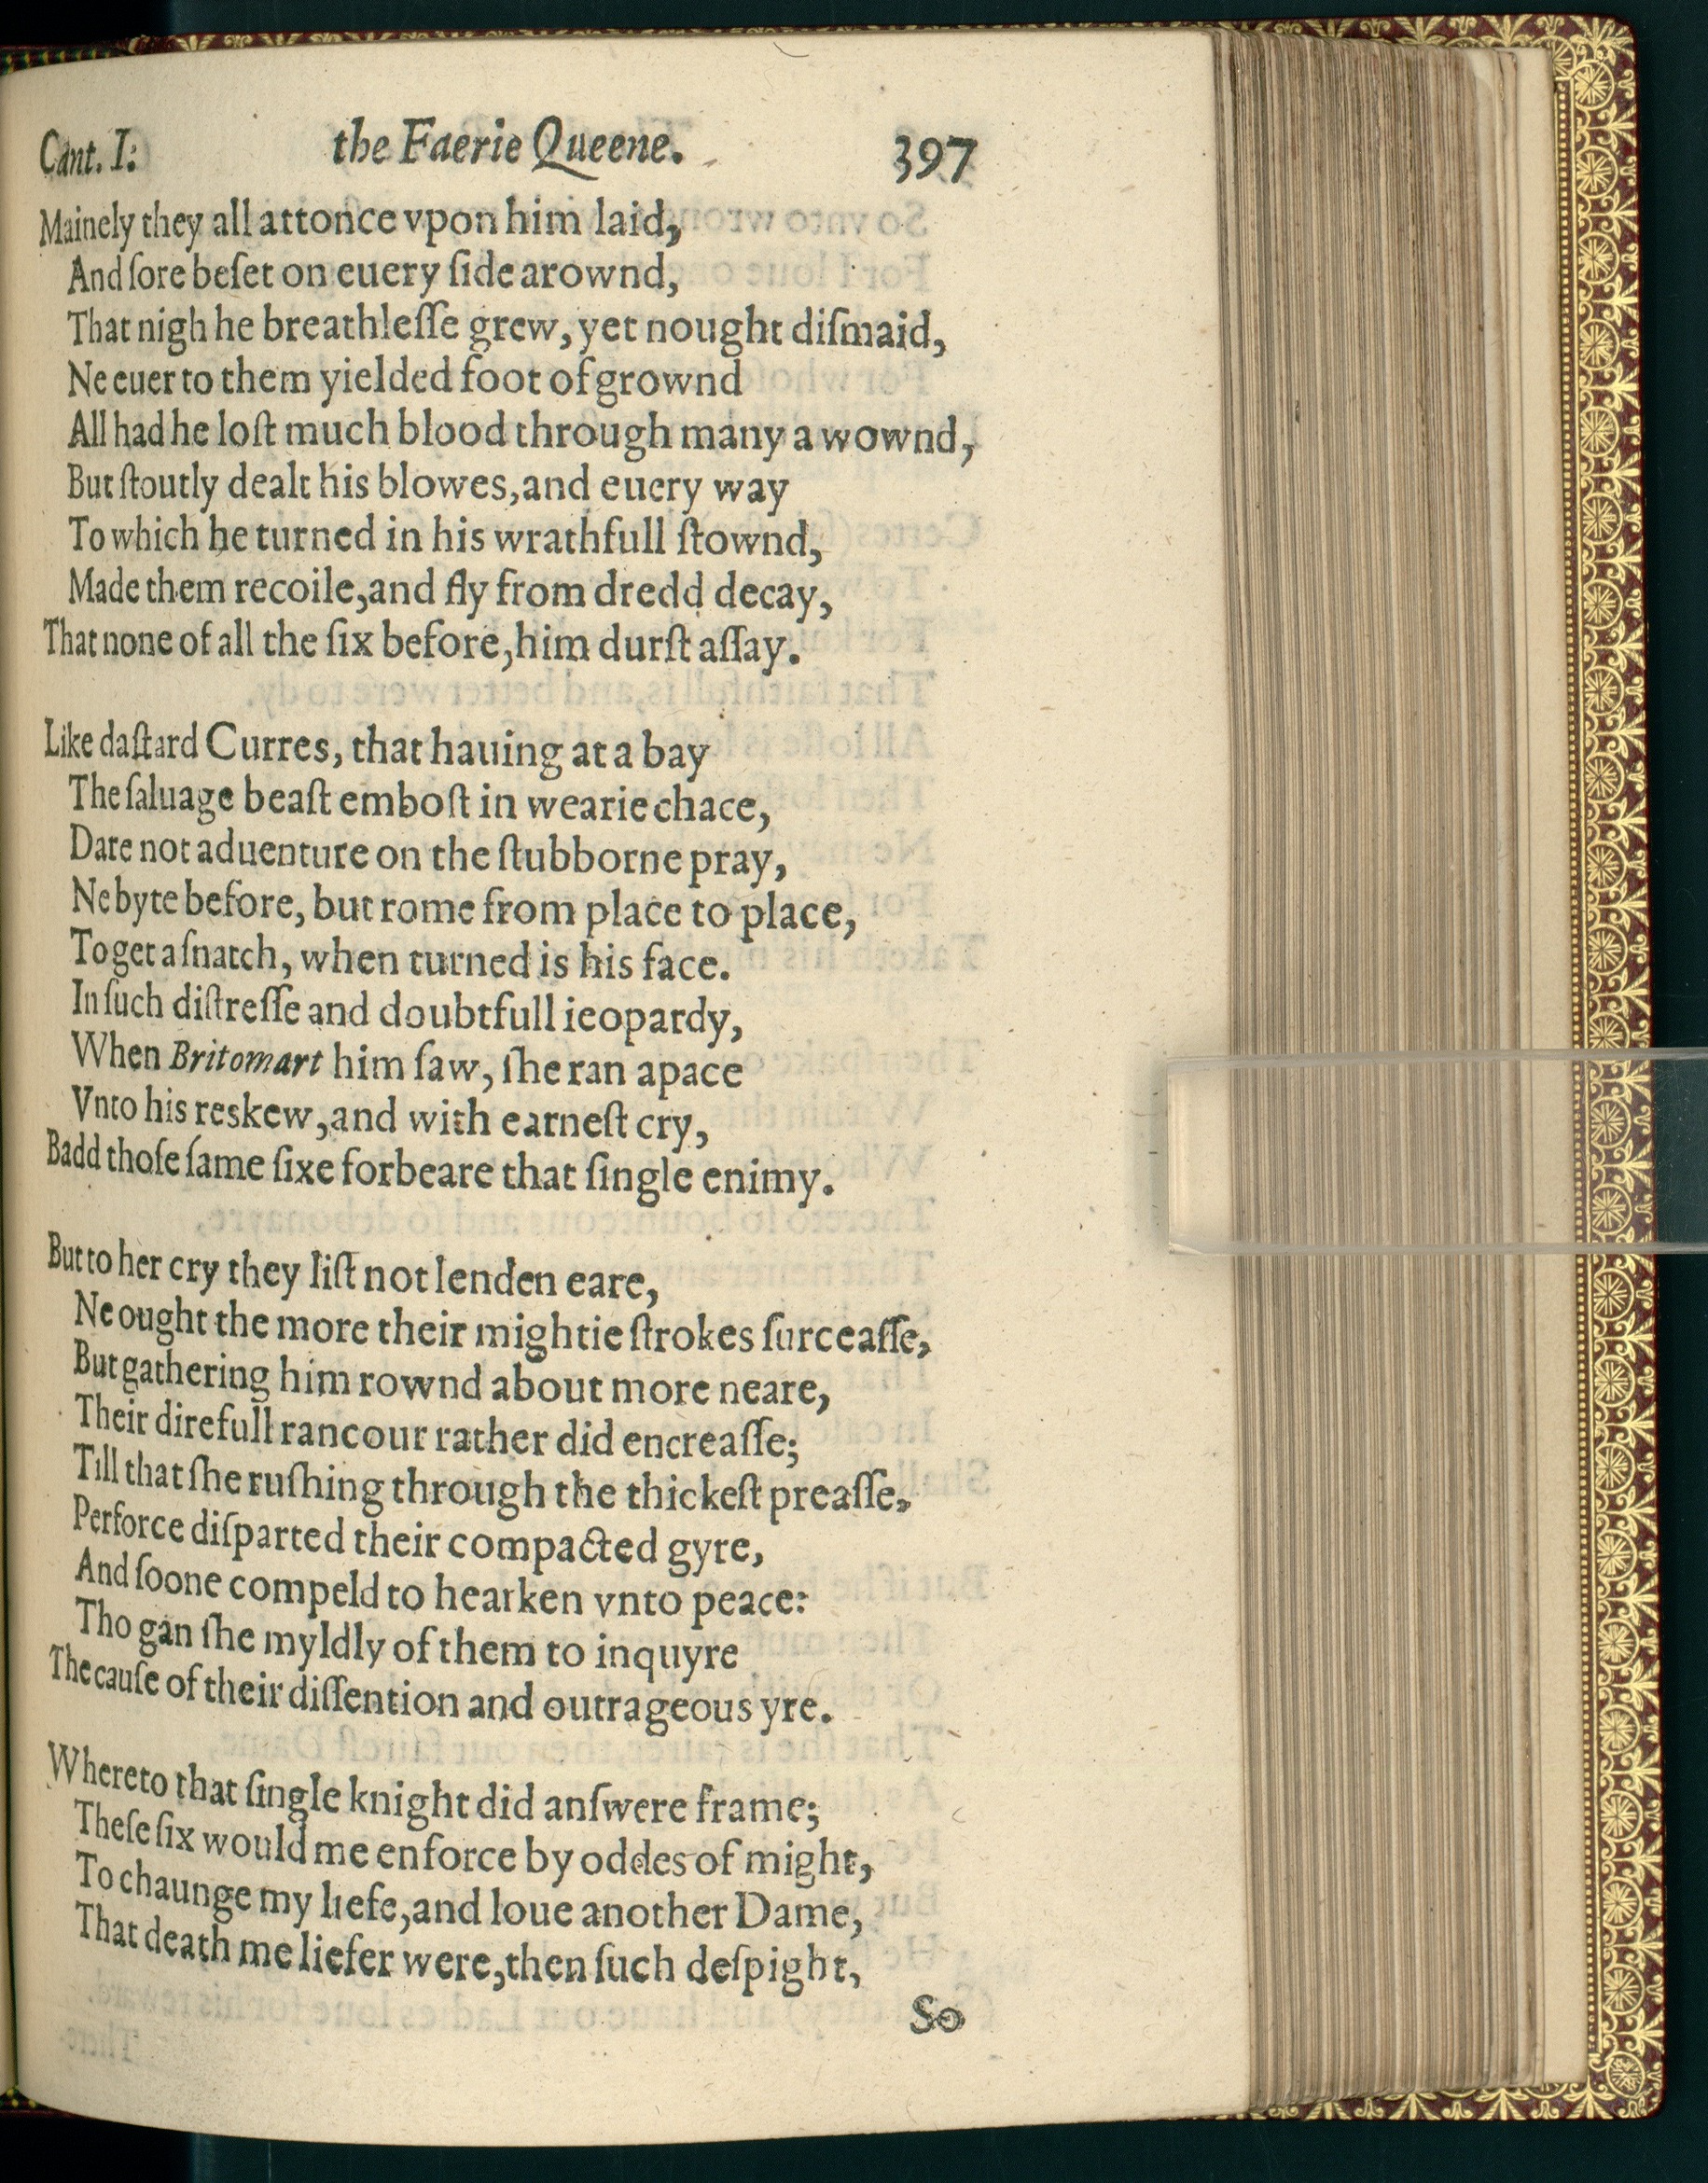 Cant. I: the Faerie Queene. 397
Mainely they all attonce vpon him laid,
And ſore beſet on euery ſide arownd,
That nigh he breathleſſe grew, yet nought diſmaid,
Ne euer to them yielded foot of grownd
All had he loſt much blood through many a wownd,
But ſtoutly dealt his blowes, and euery way
To which he turned in his wrathfull ſtownd,
Made them recoile, and fly from dredd decay,
That none of all the ſix before, him durſt aſſay.

Like daſtard Curres, that hauing at a bay
The ſaluage beaſt emboſt in wearie chace,
Dare not aduenture on the ſtubborne pray,
Ne byte before, but rome from place to place,
To get a ſnatch, when turned is his face.
In ſuch diſtreſſe and doubtfull ieopardy,
When Britomart him ſaw, ſhe ran apace
Vnto his reskew, and with earneſt cry,
Badd thoſe ſame ſixe forbeare that ſingle enimy.

But to her cry they liſt not lenden eare,
Ne ought the more their mightie ſtrokes ſurceaſſe,
But gathering him rownd about more neare,
Their direfull rancour rather did encreaſſe;
Till that ſhe ruſhing through the thickeſt preaſſe,
Perforce diſparted their compacted gyre,
And ſoone compeld to hearken vnto peace:
Tho gan ſhe myldly of them to inquyre
The cauſe of their diſſention and outrageous yre.

Whereto that ſingle knight did anſwere frame;
Theſe ſix would me enforce by oddes of might,
To chaunge my liefe, and loue another Dame,
That death me liefer were, then ſuch deſpight,
So